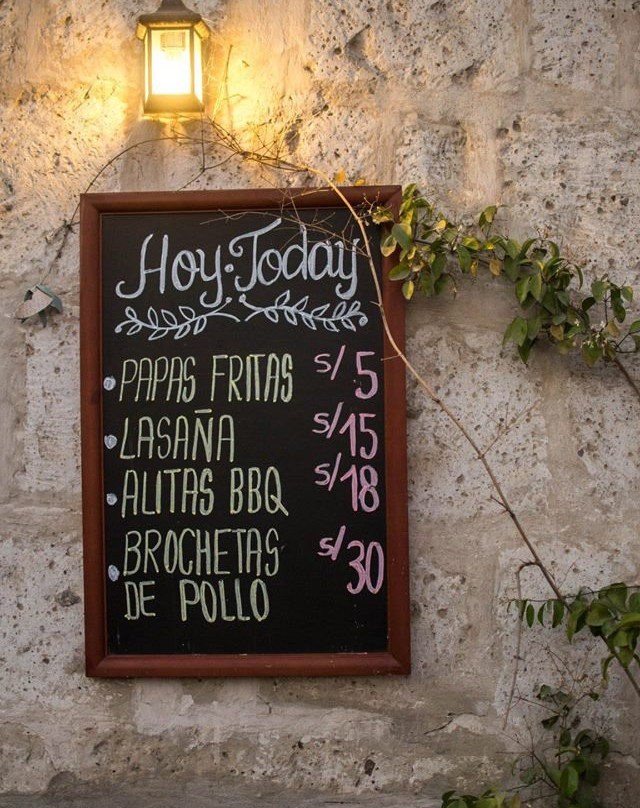 Hoy·Today
PAPAS FRITAS S/5
LASAÑA S/15
ALITAS BBQ S/18
BROCHETAS S/30
DE POLLO